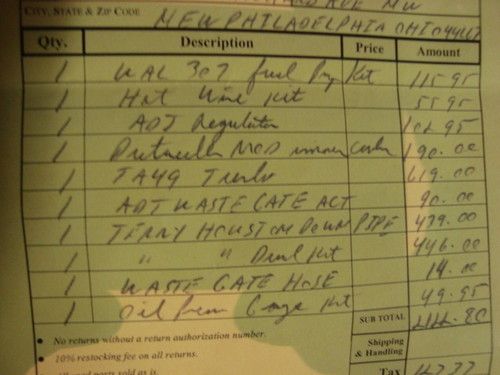 CITY, STATE & ZIP CODE NEW PHILADELPHIA OHIO
Qty. Description Price Amount
1 WAL 307 fuel Pmp Kit 115.95
1 Hot Wire Kit 55.95
1 ADJ Regulator 102.95
1 MOD 190.00
1 TA49 Turbo 619.00
1 ADJ WASTE GATE ACT 90.00
1 TERRY HOUSTON DOWN PIPE 439.00
1 " " Kit 446.00
1 WASTE GATE HOSE 14.00
1 Oil Gauge Kit 49.95
SUB TOTAL
• No returns without a return authorization number.
Shipping & Handling
• 10% restocking fee on all returns.
parts sold as is.
Tax